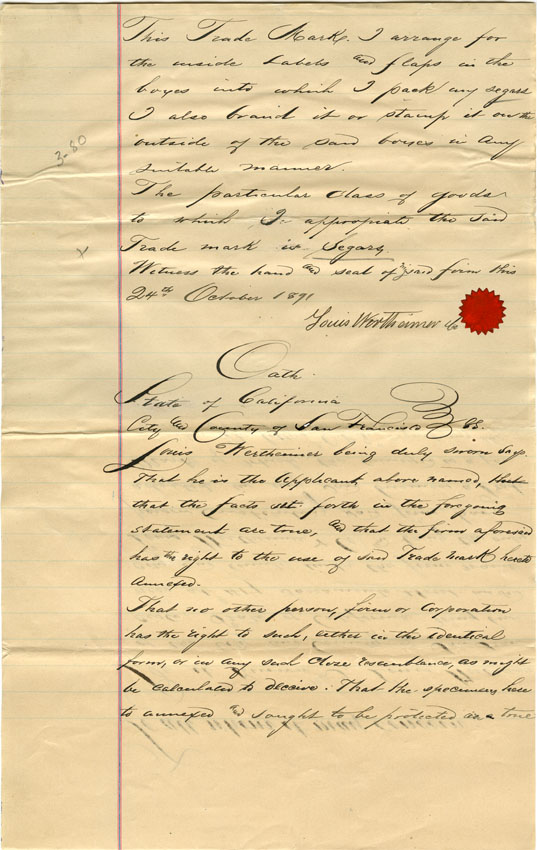 This Trade Mark. I arrange for
the inside Labels and flaps in the
boxes into which I pack my segars
I also brand it or stamp it on the
outside of the said boxes in any
suitable manner.
3-80
The particular Class of goods
to which I appropiate the said
Trade mark is Segars
x
Witness the hand and seal of said firm this
24th October 1891
Louis Wertheimer & Co
Oath.
State of California
City and County of San Francisco SS.
Louis Wertheimer being duly sworn says
That he is the Applicant above named,
that the facts set forth in the foregoing
statement are true, and that the firm aforesaid
has the right to the use of said Trade Mark hereto
annexed.
That no other person, firm or Corporation
has the right to such, either in the identical
form, or in any such close resemblance, as might
be calculated to deceive. That the specimens here
to annexed and sought to be protected are true